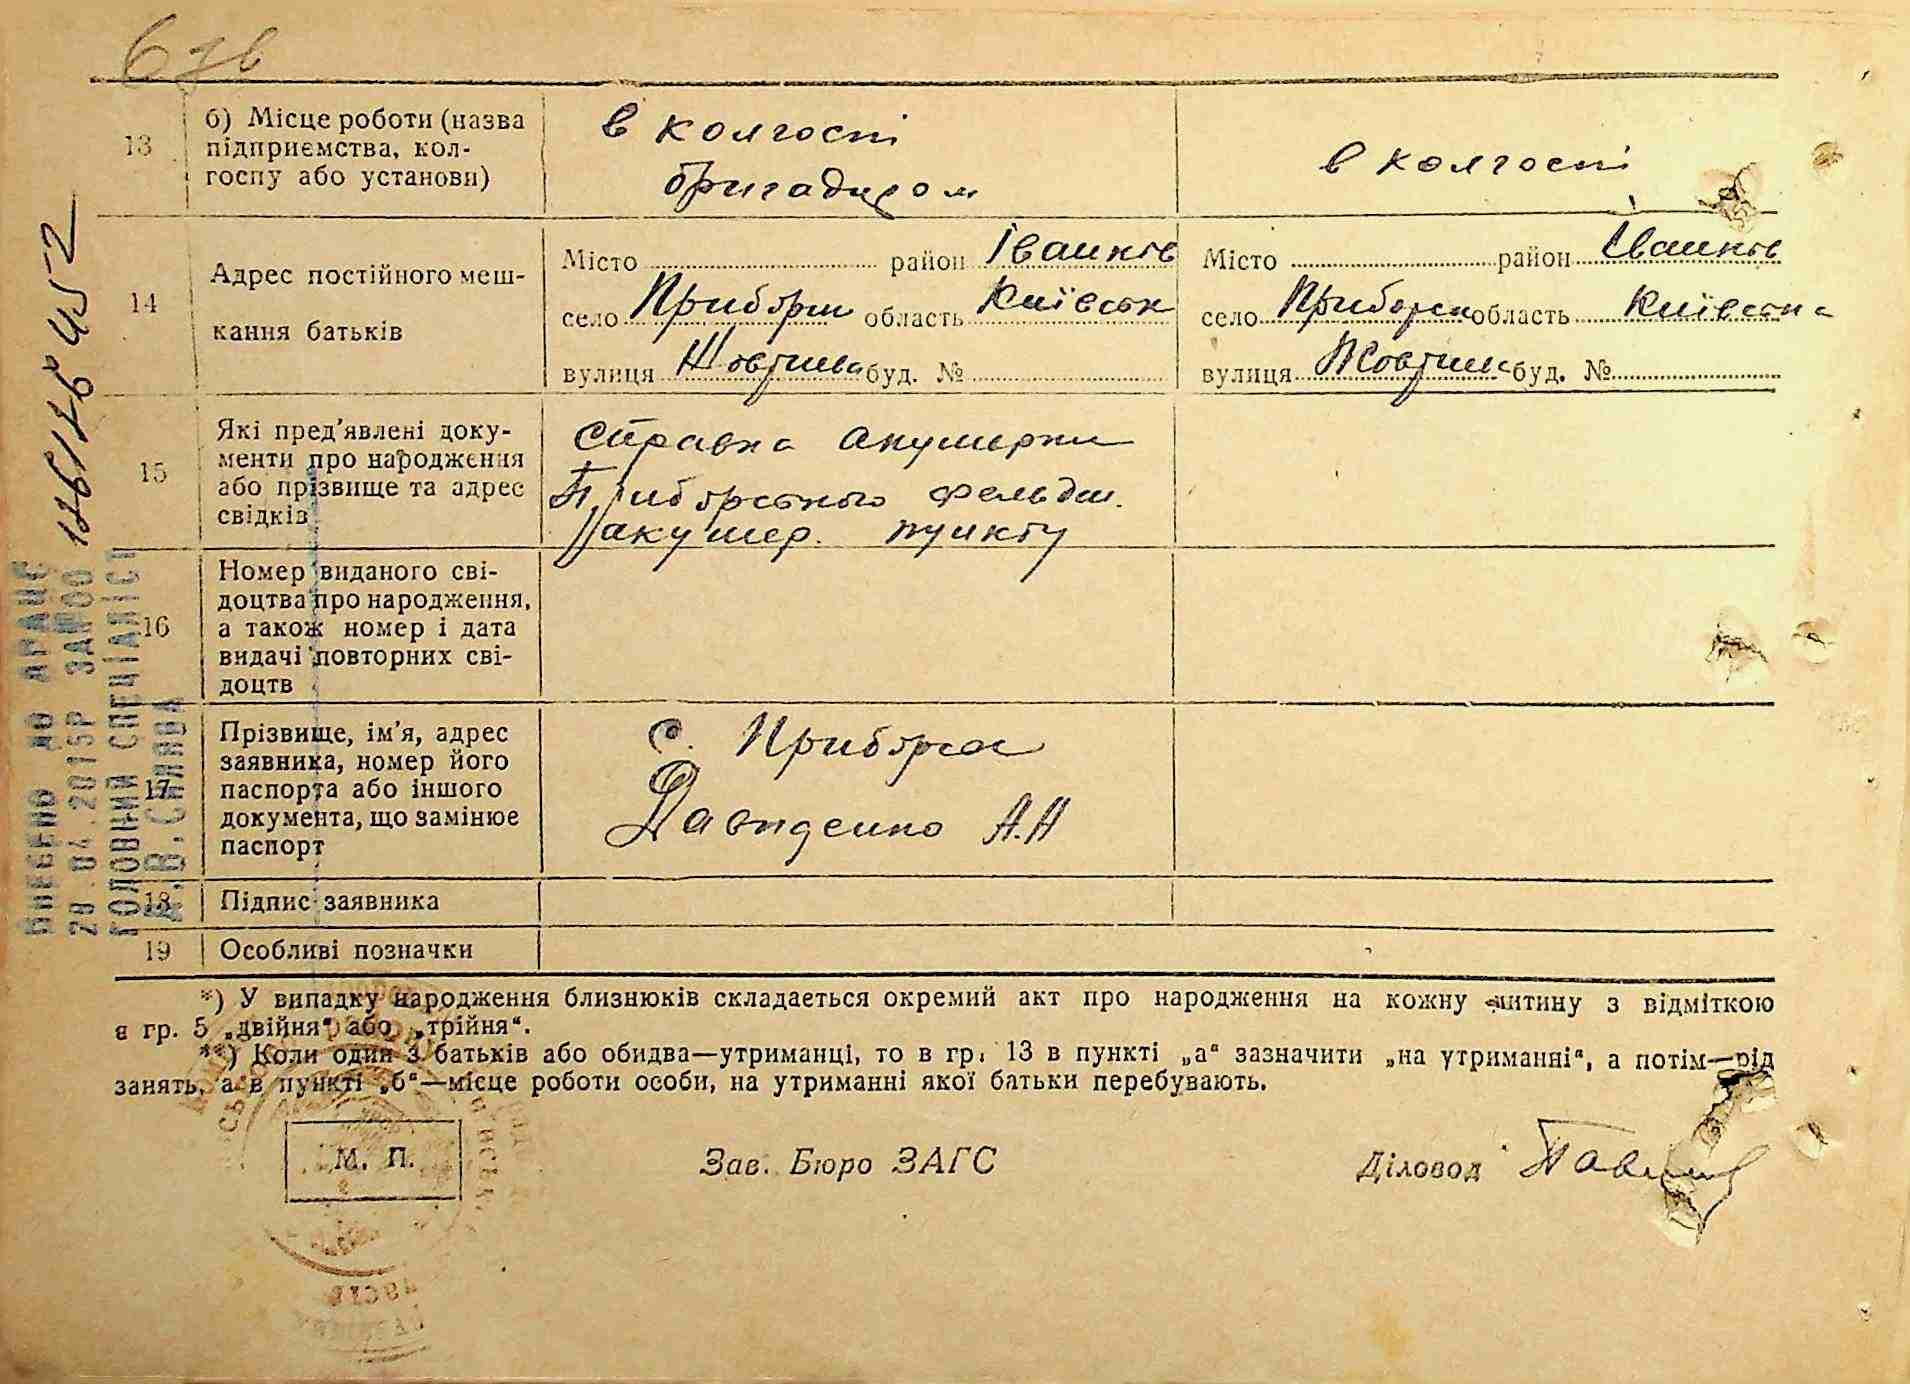 67в
13 б) Місце роботи (назва підприємства, колгоспу або установи)
в колгоспі
бригадиром
в колгоспі
14 Адрес постійного мешкання батьків
Місто район Іванків
село Приборськ область Київськ
вулиця Жовтнева буд. №
Місто район Іванків
село Приборськ область Київська
вулиця Жовтнева буд. №
15 Які пред'явлені документи про народження або прізвище та адрес свідків
Справка акушерки
Приборського фельдш.
акушер. пункту
16 Номер виданого свідоцтва про народження, а також номер і дата видачі повторних свідоцтв
17 Прізвище, ім'я, адрес заявника, номер його паспорта або іншого документа, що замінює паспорт
с. Приборск
Давиденко А.Н
18 Підпис заявника
19 Особливі позначки
*) У випадку народження близнюків складається окремий акт про народження на кожну дитину з відміткою
в гр. 5 „двійня“ або „трійня“.
**) Коли один з батьків або обидва—утриманці, то в гр. 13 в пункті „а“ зазначити „на утриманні“, а потім—рід
занять, а в пункті „б“—місце роботи особи, на утриманні якої батьки перебувають.
М. П.
Зав. Бюро ЗАГС
Діловод
ВНЕСЕНО ДО ДРАЦС
28.04.2015Р ЗА№00
ГОЛОВНИЙ СПЕЦІАЛІСТ